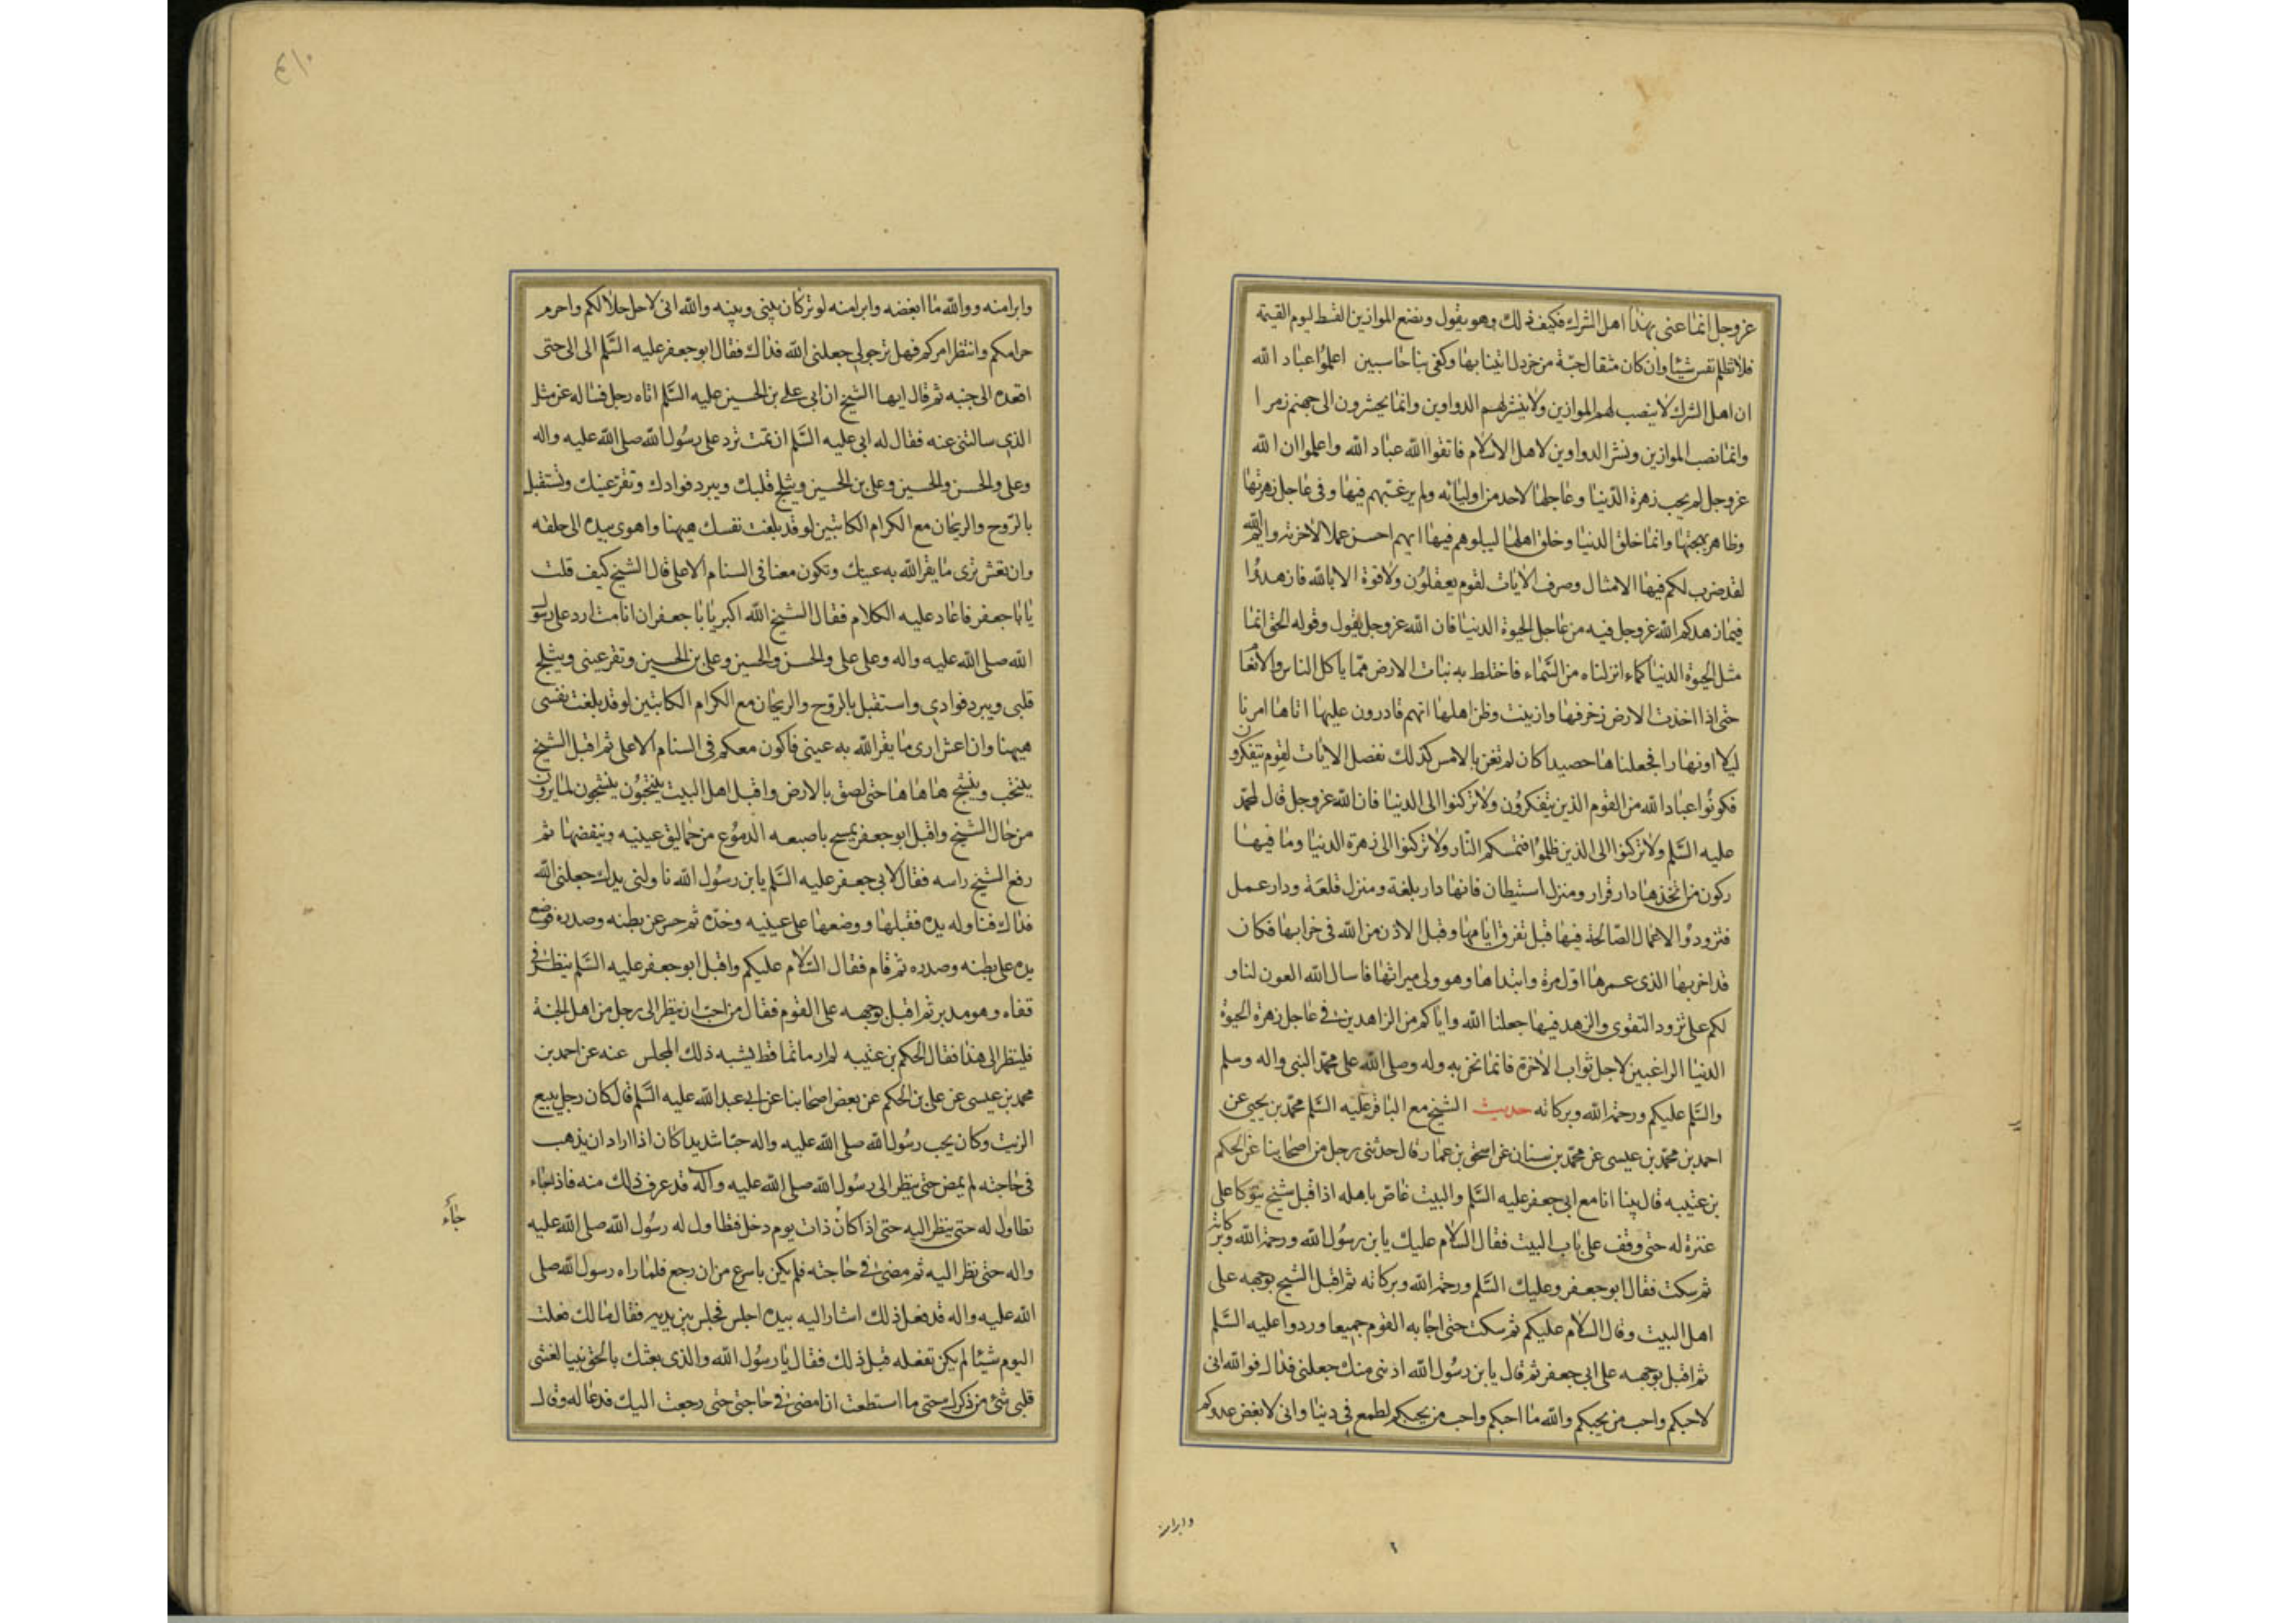 عز وجل انما عنى بهذا اهل الشرك فكيف ذلك وهو يقول ونضع الموازين القسط ليوم القيمة
فلا تظلم نفس شيئا وان كان مثقال حبة من خردل اتينا بها وكفى بنا حاسبين اعلموا عباد الله
ان اهل الشرك لا ينصب لهم الموازين ولا ينشر لهم الدواوين وانما يحشرون الى جهنم زمرا
وانما نصب الموازين ونشر الدواوين لاهل الاسلام فاتقوا الله عباد الله واعلموا ان الله
عز وجل لم يحب زهرة الدنيا وعاجلها لاحد من اوليائه ولم يرغبهم فيها وفى عاجل زهرتها
وظاهر بهجتها وانما خلق الدنيا وخلق اهلها ليبلوهم فيها ايهم احسن عملا لاخرته وايم الله
لقد ضرب لكم فيها الامثال وصرف الايات لقوم يعقلون ولا قوة الا بالله فازهدوا
فيما زهدكم الله عز وجل فيه من عاجل الحيوة الدنيا فان الله عز وجل يقول وقوله الحق انما
مثل الحيوة الدنيا كماء انزلناه من السماء فاختلط به نبات الارض مما ياكل الناس والانعام
حتى اذا اخذت الارض زخرفها وازينت وظن اهلها انهم قادرون عليها اتاها امرنا
ليلا او نهارا فجعلناها حصيدا كان لم تغن بالامس كذلك نفصل الايات لقوم يتفكرون
فكونوا عباد الله من القوم الذين يتفكرون ولا تركنوا الى الدنيا فان الله عز وجل قال لمحمد
عليه السلم ولا تركنوا الى الذين ظلموا فتمسكم النار ولا تركنوا الى زهرة الدنيا وما فيها
ركون من اتخذها دار قرار ومنزل استيطان فانها دار بلغة ومنزل قلعة ودار عمل
فتزودوا الاعمال الصالحة فيها قبل تفرق ايامها وقبل الاذن من الله فى خرابها فكان
قد اخربها الذى عمرها اول مرة وابتداها وهو ولى ميراثها فاسال الله العون لنا و
لكم على تزود التقوى والزهد فيها جعلنا الله واياكم من الزاهدين فى عاجل زهرة الحيوة
الدنيا الراغبين لاجل ثواب الاخرة فانما نحن به وله وصلى الله على محمد النبى واله وسلم
والسلم عليكم ورحمة الله وبركاته حديث الشيخ مع الباقر عليه السلم محمد بن يحيى عن
احمد بن محمد بن عيسى عن محمد بن سنان عن اسحق بن عمار قال حدثنى رجل من اصحابنا عن الحكم
بن عتيبه قال بينا انا مع ابى جعفر عليه السلم والبيت غاص باهله اذ اقبل شيخ يتوكا على
عنزة له حتى وقف على باب البيت فقال السلام عليك يا بن رسول الله ورحمة الله وبركاته
ثم سكت فقال ابو جعفر وعليك السلم ورحمة الله وبركاته ثم اقبل الشيخ بوجهه على
اهل البيت وقال السلام عليكم ثم سكت حتى اجابه القوم جميعا وردوا عليه السلم
ثم اقبل بوجهه على ابى جعفر ثم قال يا بن رسول الله ادننى منك جعلنى فداك فوالله انى
لاحبكم واحب من يحبكم والله ما احبكم واحب من يحبكم لطمع فى دنيا وانى لابغض عدوكم
وابرا منه
وابرا منه ووالله ما ابغضه وابرا منه لوتر كان بينى وبينه والله انى لاحل حلالكم واحرم
حرامكم وانتظر امركم فهل ترجو لى جعلنى الله فداك فقال ابو جعفر عليه السلم الى الى حتى
اقعده الى جنبه ثم قال ايها الشيخ ان ابى على بن الحسين عليه السلم اتاه رجل فساله عن مثل
الذى سالتنى عنه فقال له ابى عليه السلم ان تمت ترد على رسول الله صلى الله عليه واله
وعلى والحسن والحسين وعلى بن الحسين ويثلج قلبك ويبرد فوادك وتقر عينك وتستقبل
بالروح والريحان مع الكرام الكاتبين لو قد بلغت نفسك هيهنا واهوى بيده الى حلقه
وان تعش ترى ما يقر الله به عينك وتكون معنا فى السنام الاعلى قال الشيخ كيف قلت
يا با جعفر فاعاد عليه الكلام فقال الشيخ الله اكبر يا با جعفر ان انا مت ارد على رسول
الله صلى الله عليه واله وعلى على والحسن والحسين وعلى بن الحسين وتقر عينى ويثلج
قلبى ويبرد فوادى واستقبل بالروح والريحان مع الكرام الكاتبين لو قد بلغت نفسى
هيهنا وان اعش ارى ما يقر الله به عينى فاكون معكم فى السنام الاعلى ثم اقبل الشيخ
ينتحب وينشج ها ها ها حتى لصق بالارض واقبل اهل البيت ينتحبون ينشجون لما يرون
من حال الشيخ واقبل ابو جعفر يمسح باصبعه الدموع من حماليق عينيه وينفضها ثم
رفع الشيخ راسه فقال لابى جعفر عليه السلم يا بن رسول الله ناولنى يدك جعلنى الله
فداك فناوله يده فقبلها ووضعها على عينيه وخده ثم حسر عن بطنه وصدره فوضع
يده على بطنه وصدره ثم قام فقال السلام عليكم واقبل ابو جعفر عليه السلم ينظر فى
قفاه وهو مدبر ثم اقبل بوجهه على القوم فقال من احب ان ينظر الى رجل من اهل الجنة
فلينظر الى هذا فقال الحكم بن عتيبه لم ار ماتما قط يشبه ذلك المجلس عنه عن احمد بن
محمد بن عيسى عن على بن الحكم عن بعض اصحابنا عن ابى عبد الله عليه السلم قال كان رجل يبيع
الزيت وكان يحب رسول الله صلى الله عليه واله حبا شديدا كان اذا اراد ان يذهب
فى حاجته لم يمض حتى ينظر الى رسول الله صلى الله عليه وآله قد عرف ذلك منه فاذا جاء
تطاول له حتى ينظر اليه حتى اذا كان ذات يوم دخل فتطاول له رسول الله صلى الله عليه
واله حتى نظر اليه ثم مضى فى حاجته فلم يكن باسرع من ان رجع فلما راه رسول الله صلى
الله عليه واله قد فعل ذلك اشار اليه بيده اجلس فجلس بين يديه فقال مالك فعلت
اليوم شيئا لم يكن تفعله قبل ذلك فقال يا رسول الله والذى بعثك بالحق نبيا لغشى
قلبى شئ من ذكرك حتى ما استطعت ان امضى فى حاجتى حتى رجعت اليك فدعا له وقال
جاء